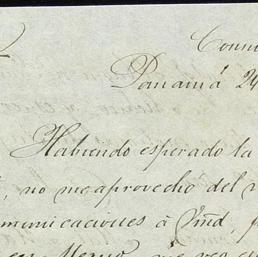 Panamá 24
Habiendo esperado la
, no me aprovecho del
municaciones á Vmd,
en